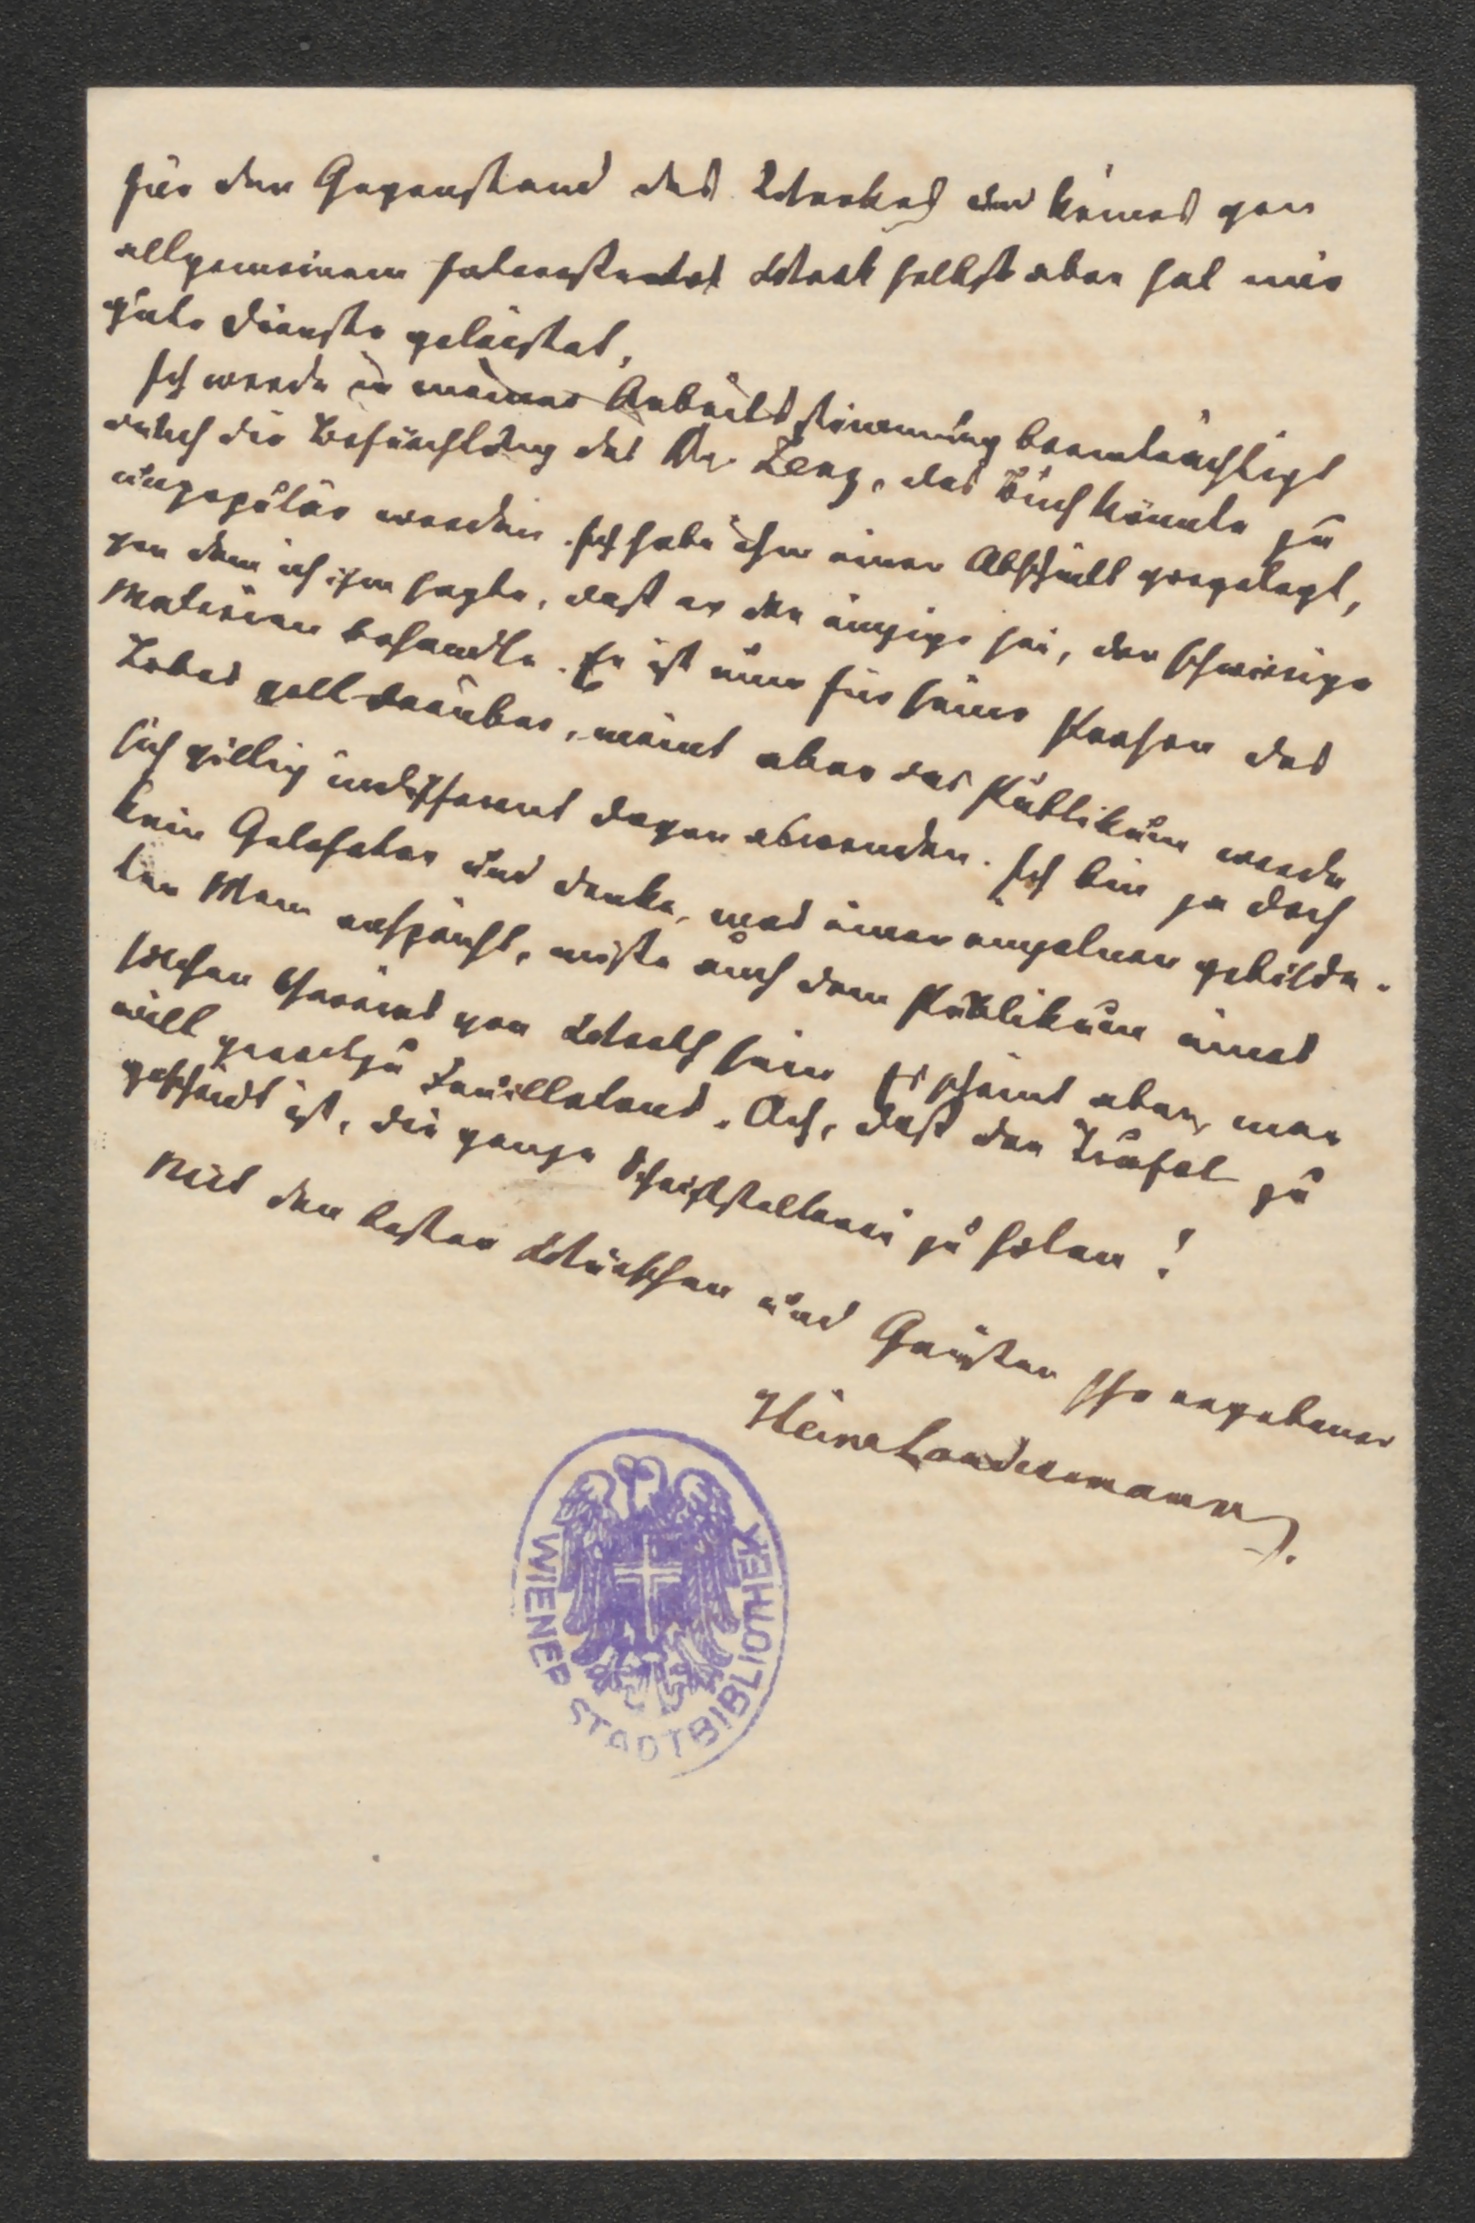 für den Gegenstand des Werkes und keines von
allgemeinem Interesse das Werk selbst aber hat mir
gute Dienste geleistet,
Ich werde in meiner Arbeitsstimmung beeinträchtigt
durch die Befürchtung des Dr. Lenz, das Buch könnte zu
unpopulär werden. Ich habe ihm einen Abschnitt vorgelegt,
von dem ich ihm sagte, daß er der einzige sei, der schwierige
Materien behandle. Er ist nun für seine Person des
Lobes voll darüber, meint aber das Publikum werde
sich völlig indifferent davon abwenden. Ich bin ja doch
kein Gelehrter und denke, was einen einzelnen gebilde-
ten Mann anspricht, müßte auch dem Publikum eines
solchen Vereines von Werth sein Es scheint aber, man
will partout Feuilletons. Ach, daß der Teufel zu
gescheidt ist, die ganze Schriftstellerei zu holen!
Mit den besten Wünschen und Grüßen Ihr ergebener
Heinr Landesmann.
WIENER STADTBIBLIOTHEK